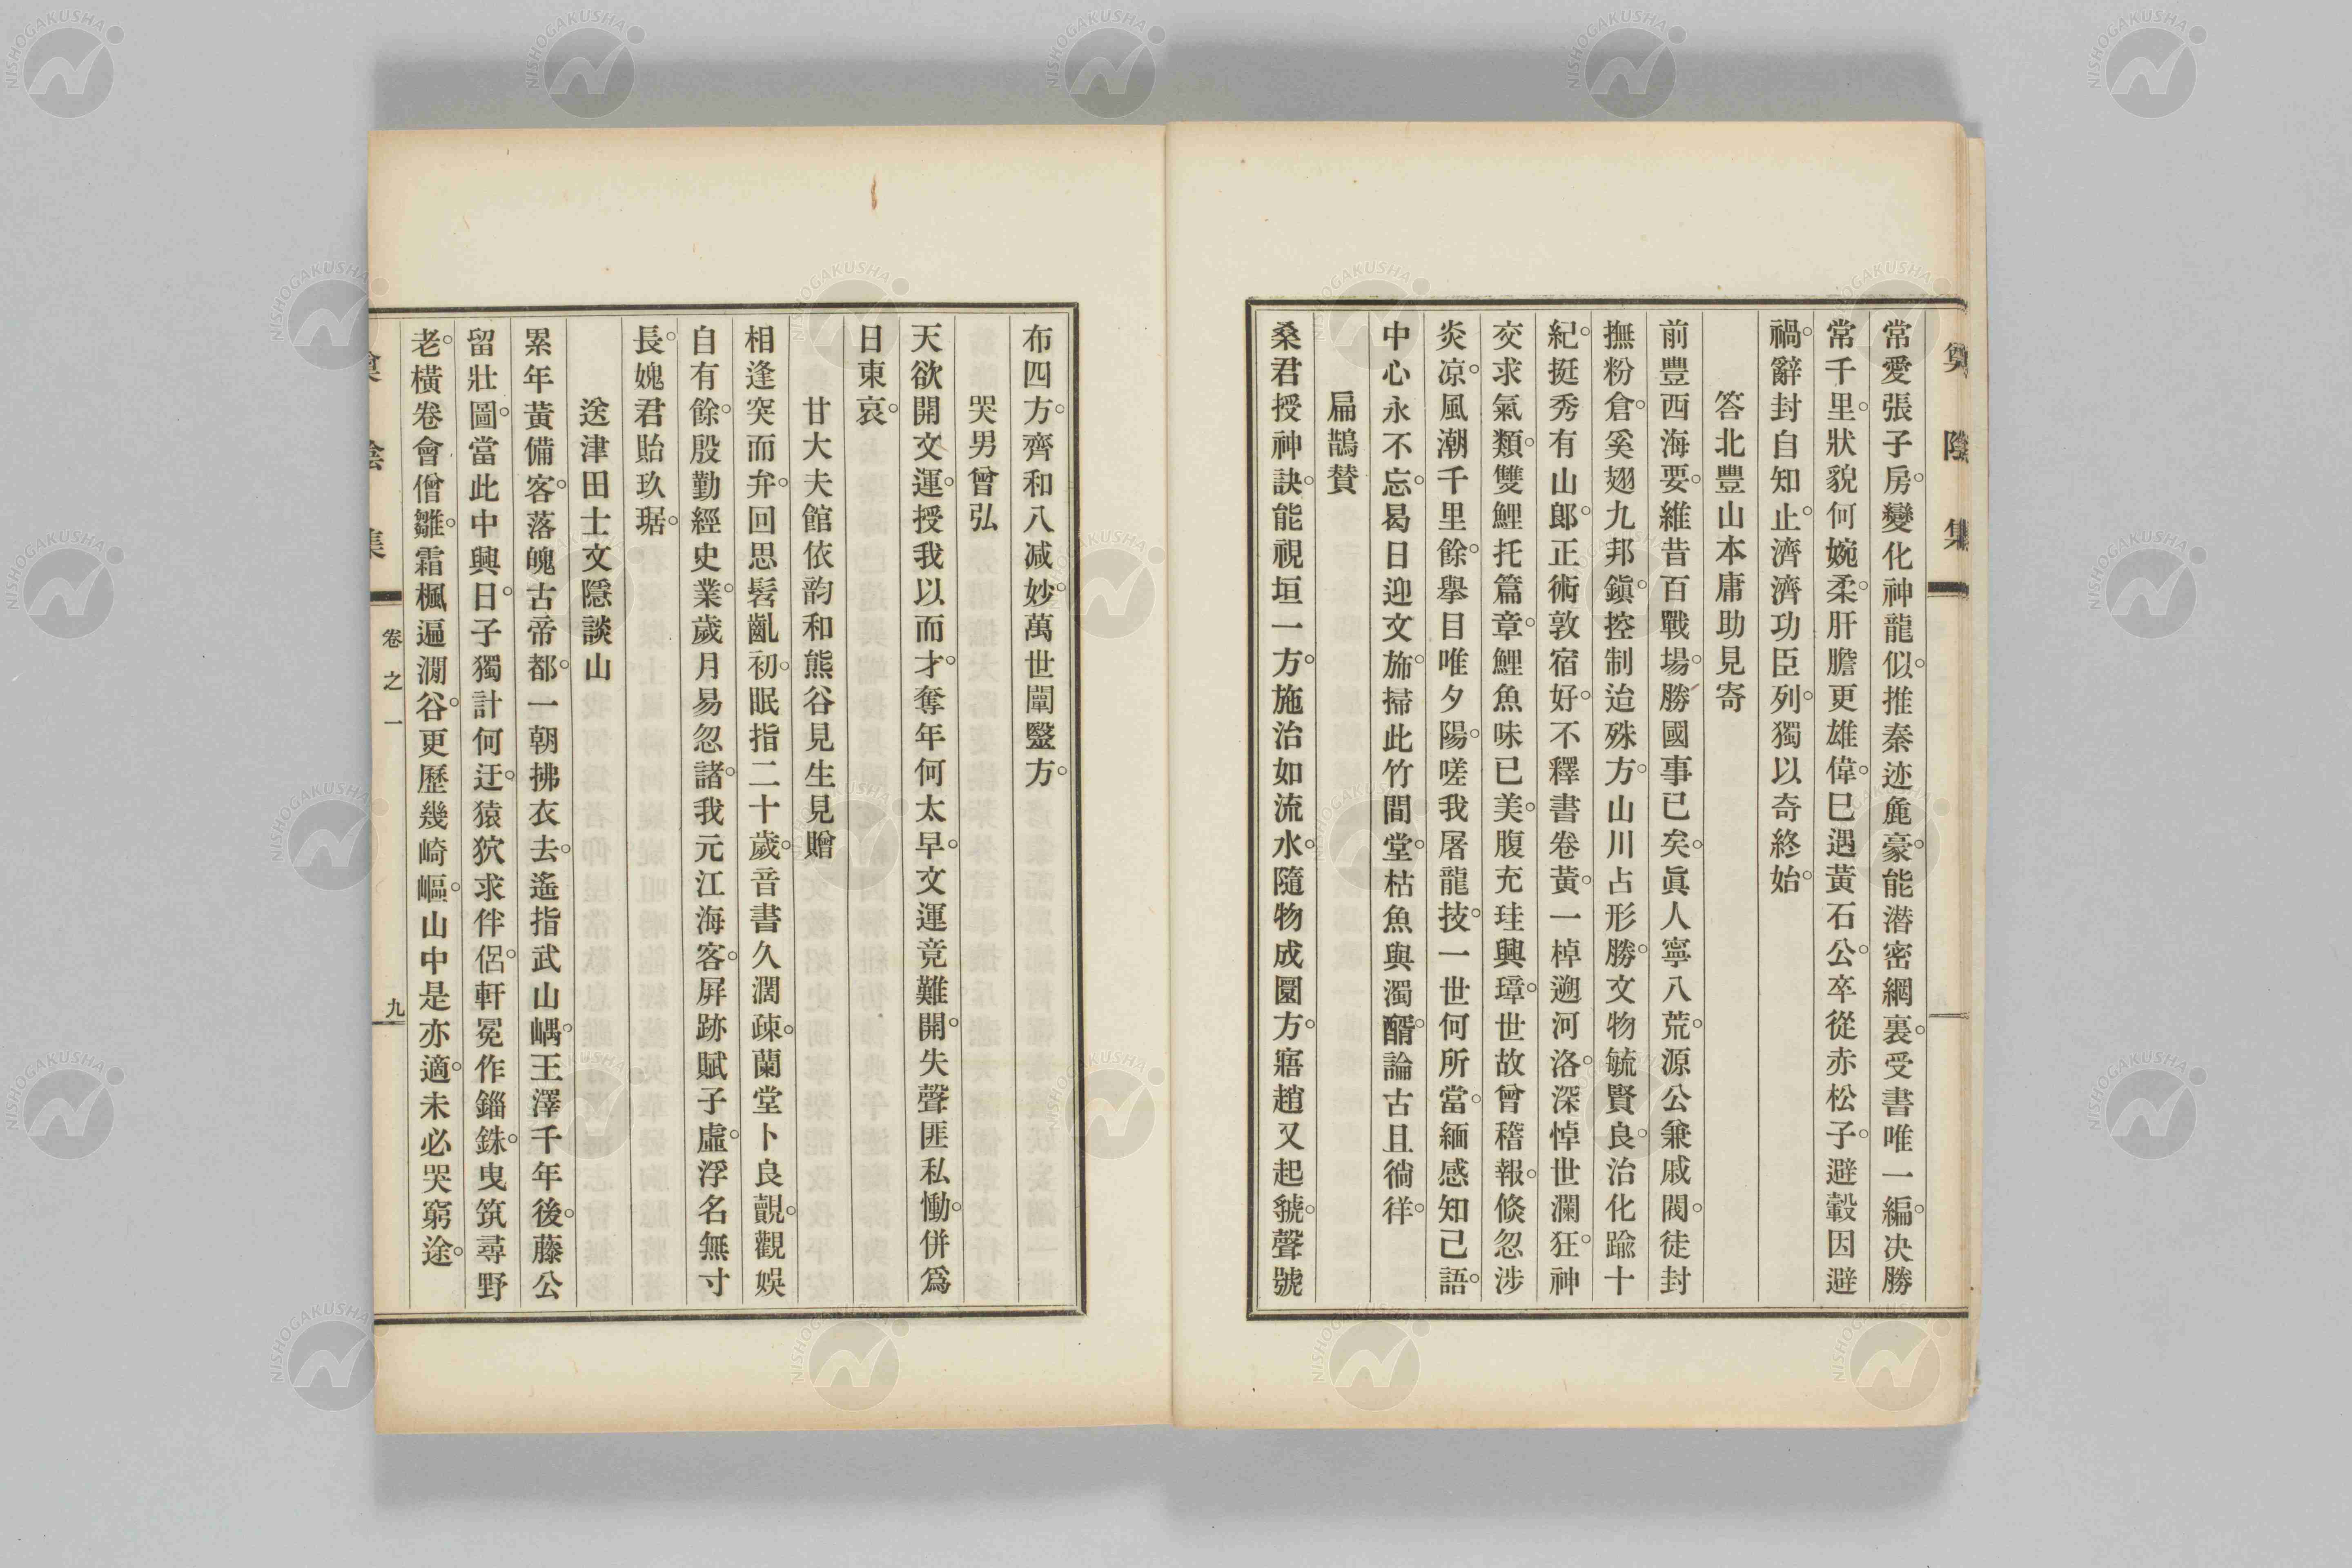 常愛張子房。變化神龍似。推秦迹麁豪。能潛密網裏。受書唯一編。決勝
常千里。狀貌何婉柔。肝膽更雄偉。已遇黃石公。卒從赤松子。避穀因避
禍。辭封自知止。濟濟功臣列。獨以奇終始。
答北豐山本庸助見寄
前豐西海要。維昔百戰場。勝國事已矣。眞人寧八荒。源公兼戚閥。徒封
撫粉倉。奚翅九邦鎭。控制迨殊方。山川占形勝。文物毓賢良。治化踰十
紀。挺秀有山郎。正術敦宿好。不釋書卷黃。一棹遡河洛。深悼世瀾狂。神
交求氣類。雙鯉托篇章。鯉魚味已美。腹充珪與璋。世故曾稽報。倏忽涉
炎凉。風潮千里餘。擧目唯夕陽。嗟我屠龍技。一世何所當。緬感知己語。
中心永不忘。曷日迎文斾。掃此竹間堂。枯魚與濁醑。論古且徜徉。
扁鵲賛
桑君授神訣。能視垣一方。施治如流水。隨物成圜方。寤趙又起虢。聲號
布四方。齊和八减妙。萬世闡毉方。
哭男曾弘
天欲開文運。授我以而才。奪年何太早。文運竟難開。失聲匪私慟。併爲
日東哀。
甘大夫館依韵和熊谷見生見贈
相逢突而弁。回思髫齓初。眠指二十歲。音書久濶疎。蘭堂卜良覿。觀娛
自有餘。殷勤經史業。歲月易忽諸。我元江海客。屏跡賦子虛。浮名無寸
長。媿君貽玖琚。
送津田士文隱談山
累年黃備客。落魄古帝都。一朝拂衣去。遙指武山嵎。王澤千年後。藤公
留壯圖。當此中興日。子獨計何迂。猿狖求伴侶。軒冕作錙銖。曳筑尋野
老。橫卷會僧雛。霜楓遍澗谷。更歷幾崎嶇。山中是亦適。未必哭窮途。
卷之一
九
NISHOGAKUSHA